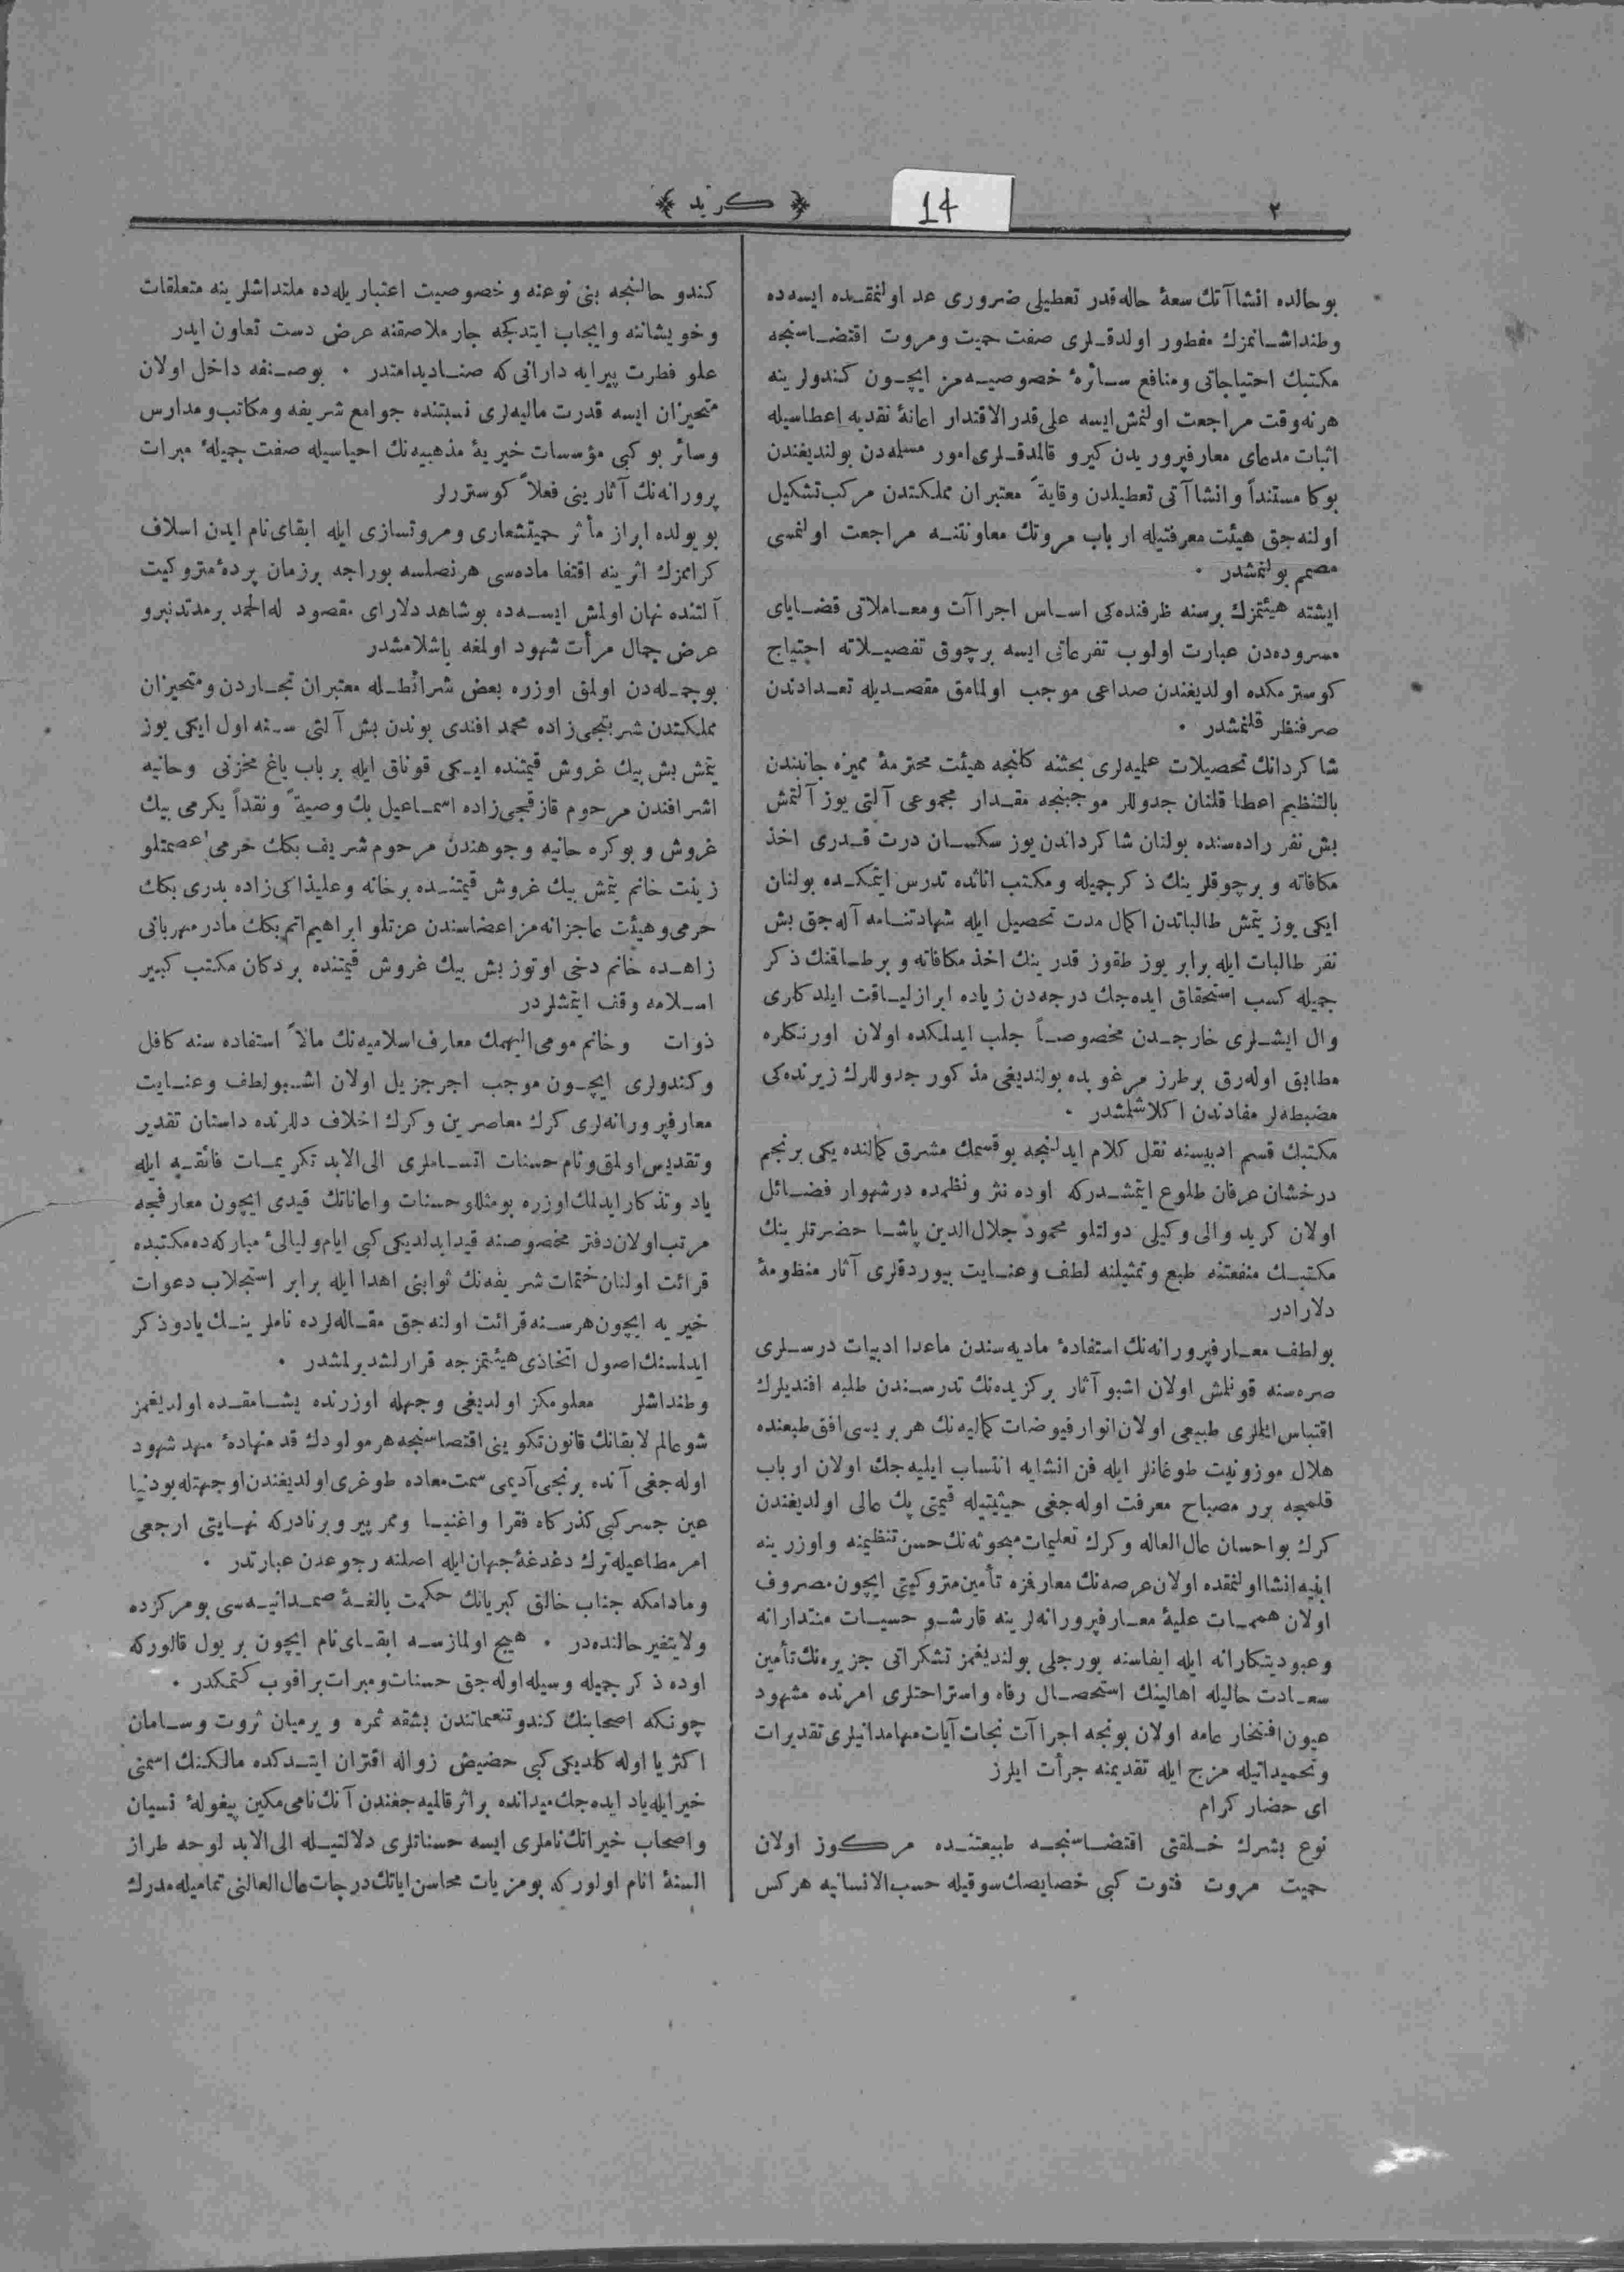 ٢
﴿ كريد ﴾
14
بو حالده انشاآتك سعهٔ حاله قدر تعطيلى ضرورى عد اولنمقده ايسه ده
وطنداشانمزك مفطور اولدقلرى صفت حميت و مروت اقتضاسنجه
مكتبك احتياجاتى و منافع سائرهٔ خصوصيه مز ايچون كندولرينه
هر نه وقت مراجعت اولنمش ايسه على قدر الاقتدار اعانهٔ نقديه اعطاسيله
اثبات مدعاى معارفپروريدن كيرو قالمدقلرى امور مسلمه دن بولنديغندن
بوكا مستنداً و انشاآتى تعطيلدن وقايةً معتبران مملكتدن مركب تشكيل
اولنه جق هيئت معرفتيله ارباب مروتك معاونتنه مراجعت اولنمسى
مصمم بولنمشدر ٠
ايشته هيئتمزك برسنه ظرفنده كى اساس اجراآت و معاملاتى قضاياى
مسروده دن عبارت اولوب تفرعاتى ايسه برچوق تفصيلاته احتياج
كوسترمكده اولديغندن صداعى موجب اولمامق مقصديله تعدادندن
صرفنظر قلنمشدر ٠
شاكردانك تحصيلات علميه لرى بحثنه كلنجه هيئت محترمهٔ مميزه جانبندن
بالتنظيم اعطا قلنان جدوللر موجبنجه مقدار مجموعى آلتى يوز آلتمش
بش نفر راده سنده بولنان شاكرداندن يوز سكسان درت قدرى اخذ
مكافاته و برچوقلرينك ذكر جميله و مكتب اناثده تدرس ايتمكده بولنان
ايكى يوز يتمش طالباتدن اكمال مدت تحصيل ايله شهادتنامه آله جق بش
نفر طالبات ايله برابر يوز طقوز قدرينك اخذ مكافاته و برطاقنك ذكر
جميله كسب استحقاق ايده جك درجه دن زياده ابراز لياقت ايلدكلرى
وال ايشلرى خارجدن مخصوصاً جلب ايدلمكده اولان اورنكلره
مطابق اوله رق برطرز مرغوبده بولنديغى مذكور جدوللرك زيرنده كى
مضبطه لر مفادندن اكلاشلمشدر ٠
مكتبك قسم ادبيسنه نقل كلام ايدلنجه بو قسمك مشرق كمالنده يكى برنجم
درخشان عرفان طلوع ايتمشدركه اوده نثر و نظمده درشهوار فضائل
اولان كريد والى وكيلى دولتلو محمود جلال الدين پاشا حضرتلرينك
مكتبك منفعتنه طبع و تمثيلنه لطف و عنايت بيوردقلرى آثار منظومهٔ
دلارادر
بولطف معارفپرورانه نك استفادهٔ ماديه سندن ماعدا ادبيات درسلرى
صره سنه قونلمش اولان اشبو آثار بركزيده نك تدرسندن طلبه افنديلرك
اقتباس ايتلرى طبيعى اولان انوار فيوضات كماليه نك هر بريسى افق طبعنده
هلال موزونيت طوغانلر ايله فن انشايه انتساب ايليه جك اولان ارباب
قلمجه برر مصباح معرفت اوله جغى حيثيتيله قيمتى پك عالى اولديغندن
كرك بو احسان عال العاله و كرك تعليمات مبحوثه نك حسن تنظيمنه و اوزرينه
ابنيه انشا اولنمقده اولان عرصه نك معارفزه تأمين متروكيتى ايچون مصروف
اولان همات عليهٔ معارفپرورانه لرينه قارشو حسيات منتدارانه
و عبوديتكارانه ايله ايفاسنه بورجلى بولنديغمز تشكراتى جزيره نك تأمين
سعادت حاليله اهالينك استحصال رفاه و استراحتلرى امرنده مشهود
عيون افتخار عامه اولان بونجه اجراآت نجات آيات مهامدانيلرى تقديرات
و تحميداتيله مزج ايله تقديمنه جرأت ايلرز
اى حضار كرام
نوع بشرك خلقتى اقتضاسنجه طبيعتنده مركوز اولان
حميت مروت فتوت كبى خصايصك سوقيله حسب الانسانيه هركس
كندو حالنجه بنى نوعنه و خصوصيت اعتباريله ده ملتداشلرينه متعلقات
و خويشاننه و ايجاب ايتدكجه جار ملاصقنه عرض دست تعاون ايدر
علو فطرت پيرايه دارانى كه صناديدامتدر ٠ بوصنفه داخل اولان
متحيزان ايسه قدرت ماليه لرى نسبتنده جوامع شريفه و مكاتب و مدارس
و سائر بوكبى مؤسسات خيريهٔ مذهبيه نك احياسيله صفت جميلهٔ مبرات
پرورانه نك آثارينى فعلاً كوسترلر
بو يولده ابراز مأثر حميتشعارى و مروتسازى ايله ابقاى نام ايدن اسلاف
كرامزك اثرينه اقتفا ماده سى هر نصلسه بوراجه برزمان پردهٔ متروكيت
آلتنده نهان اولمش ايسه ده بو شاهد دلاراى مقصود له الحمد برمدتدنبرو
عرض جمال مرأت شهود اولمغه باشلامشدر
بو جمله دن اولمق اوزره بعض شرائطله معتبران تجاردن و متحيزان
مملكتدن شربتجى زاده محمد افندى بوندن بش آلتى سنه اول ايكى يوز
يتمش بش بيك غروش قيمتنده ايكى قوناق ايله برباب ياغ مخزنى و حانيه
اشرافندن مرحوم قازقجى زاده اسماعيل بك وصيةً و نقداً يكرمى بيك
غروش و بوكره حانيه و جوهندن مرحوم شريف بكك حرمى عصمتلو
زينت خانم يتمش بيك غروش قيمتنده برخانه و عليذاكى زاده بدرى بكك
حرمى و هيئت عاجزانه مز اعضاسندن عزتلو ابراهيم اتم بكك مادر مهربانى
زاهده خانم دخى اوتوز بش بيك غروش قيمتنده بر دكان مكتب كبير
اسلامه وقف ايتمشلردر
ذوات و خانم مومى اليهمك معارف اسلاميه نك مالاً استفاده سنه كافل
و كندولرى ايچون موجب اجر جزيل اولان اشبو لطف و عنايت
معارفپرورانه لرى كرك معاصرين و كرك اخلاف دللرنده داستان تقدير
و تقديس اولمق و نام حسنات اتساملرى الى الابد تكريمات فائقه ايله
ياد و تذكار ايدلمك اوزره بومثللو حسنات و اعاناتك قيدى ايچون معارفجه
مرتب اولان دفتر مخصوصنه قيد ايدلديكى كبى ايام و ليالىٔ مباركه ده مكتبده
قرائت اولنان ختمات شريفه نك ثوابنى اهدا ايله برابر استجلاب دعوات
خيريه ايچون هر سنه قرائت اولنه جق مقاله لرده ناملرينك ياد و ذكر
ايدلمسنك اصول اتخاذى هيئتمزجه قرارلشديرلمشدر ٠
وطنداشلر معلومكز اولديغى وجهله اوزرنده يشامقده اولديغمز
شو عالم لابقانك قانون تكوينى اقتضاسنجه هر مولودك قدمنهادهٔ مهد شهود
اوله جغى آنده برنجى آديمى سمت معاده طوغرى اولديغندن او جهتله بودنيا
عين جسر كبى كذركاه فقرا و اغنيا و ممر پير و برنادركه نهايتى ارجعى
امر مطاعيله ترك دغدغهٔ جهان ايله اصلنه رجوعدن عبارتدر ٠
و مادامكه جناب خالق كبريانك حكمت بالغهٔ صمدانيه سى بو مركزده
ولا يتغير حالنده در ٠ هيچ اولمازسه ابقاى نام ايچون بر يول قالوركه
اوده ذكر جميله وسيله اوله جق حسنات و مبرات براقوب كتمكدر ٠
چونكه اصحابنك كندو تنعماتندن بشقه ثمره ويرميان ثروت و سامان
اكثريا اوله كلديكى كبى حضيض زواله اقتران ايتدكده مالكنك اسمنى
خير ايله ياد ايده جك ميدانده براثر قالميه جغندن آنك نامى مكين پيغولهٔ نسيان
و اصحاب خيراتك ناملرى ايسه حسناتلرى دلالتيله الى الابد لوحه طراز
السنهٔ انام اولوركه بومزيات محاسن اياتك درجات عال العالنى تماميله مدرك